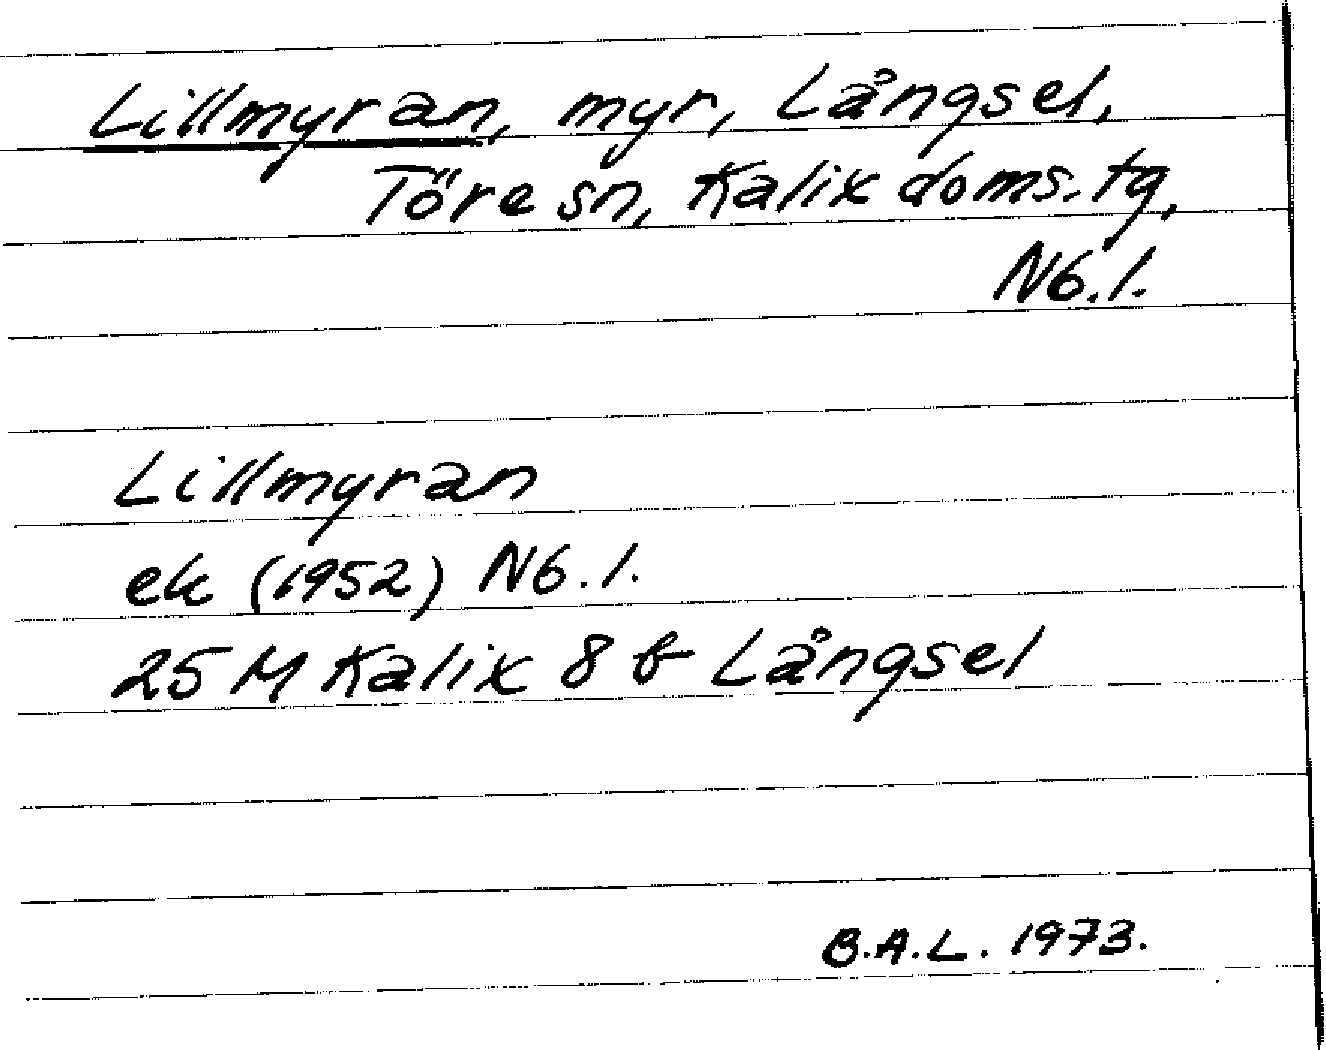 Lillmyran, myr, Långsel,
Töre sn, Kalix doms.tg,
Nb.l.
Lillmyran
ek (1952) Nb.l.
25 M Kalix 8 b Långsel
B.A.L. 1973.